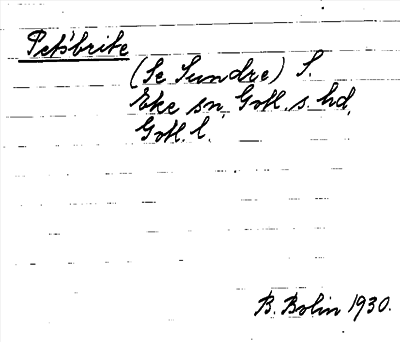 Petsbrite
(Se Sundre) S.
Eke sn, Gotl. s. hd,
Gotl. l.
B. Bolin 1930.